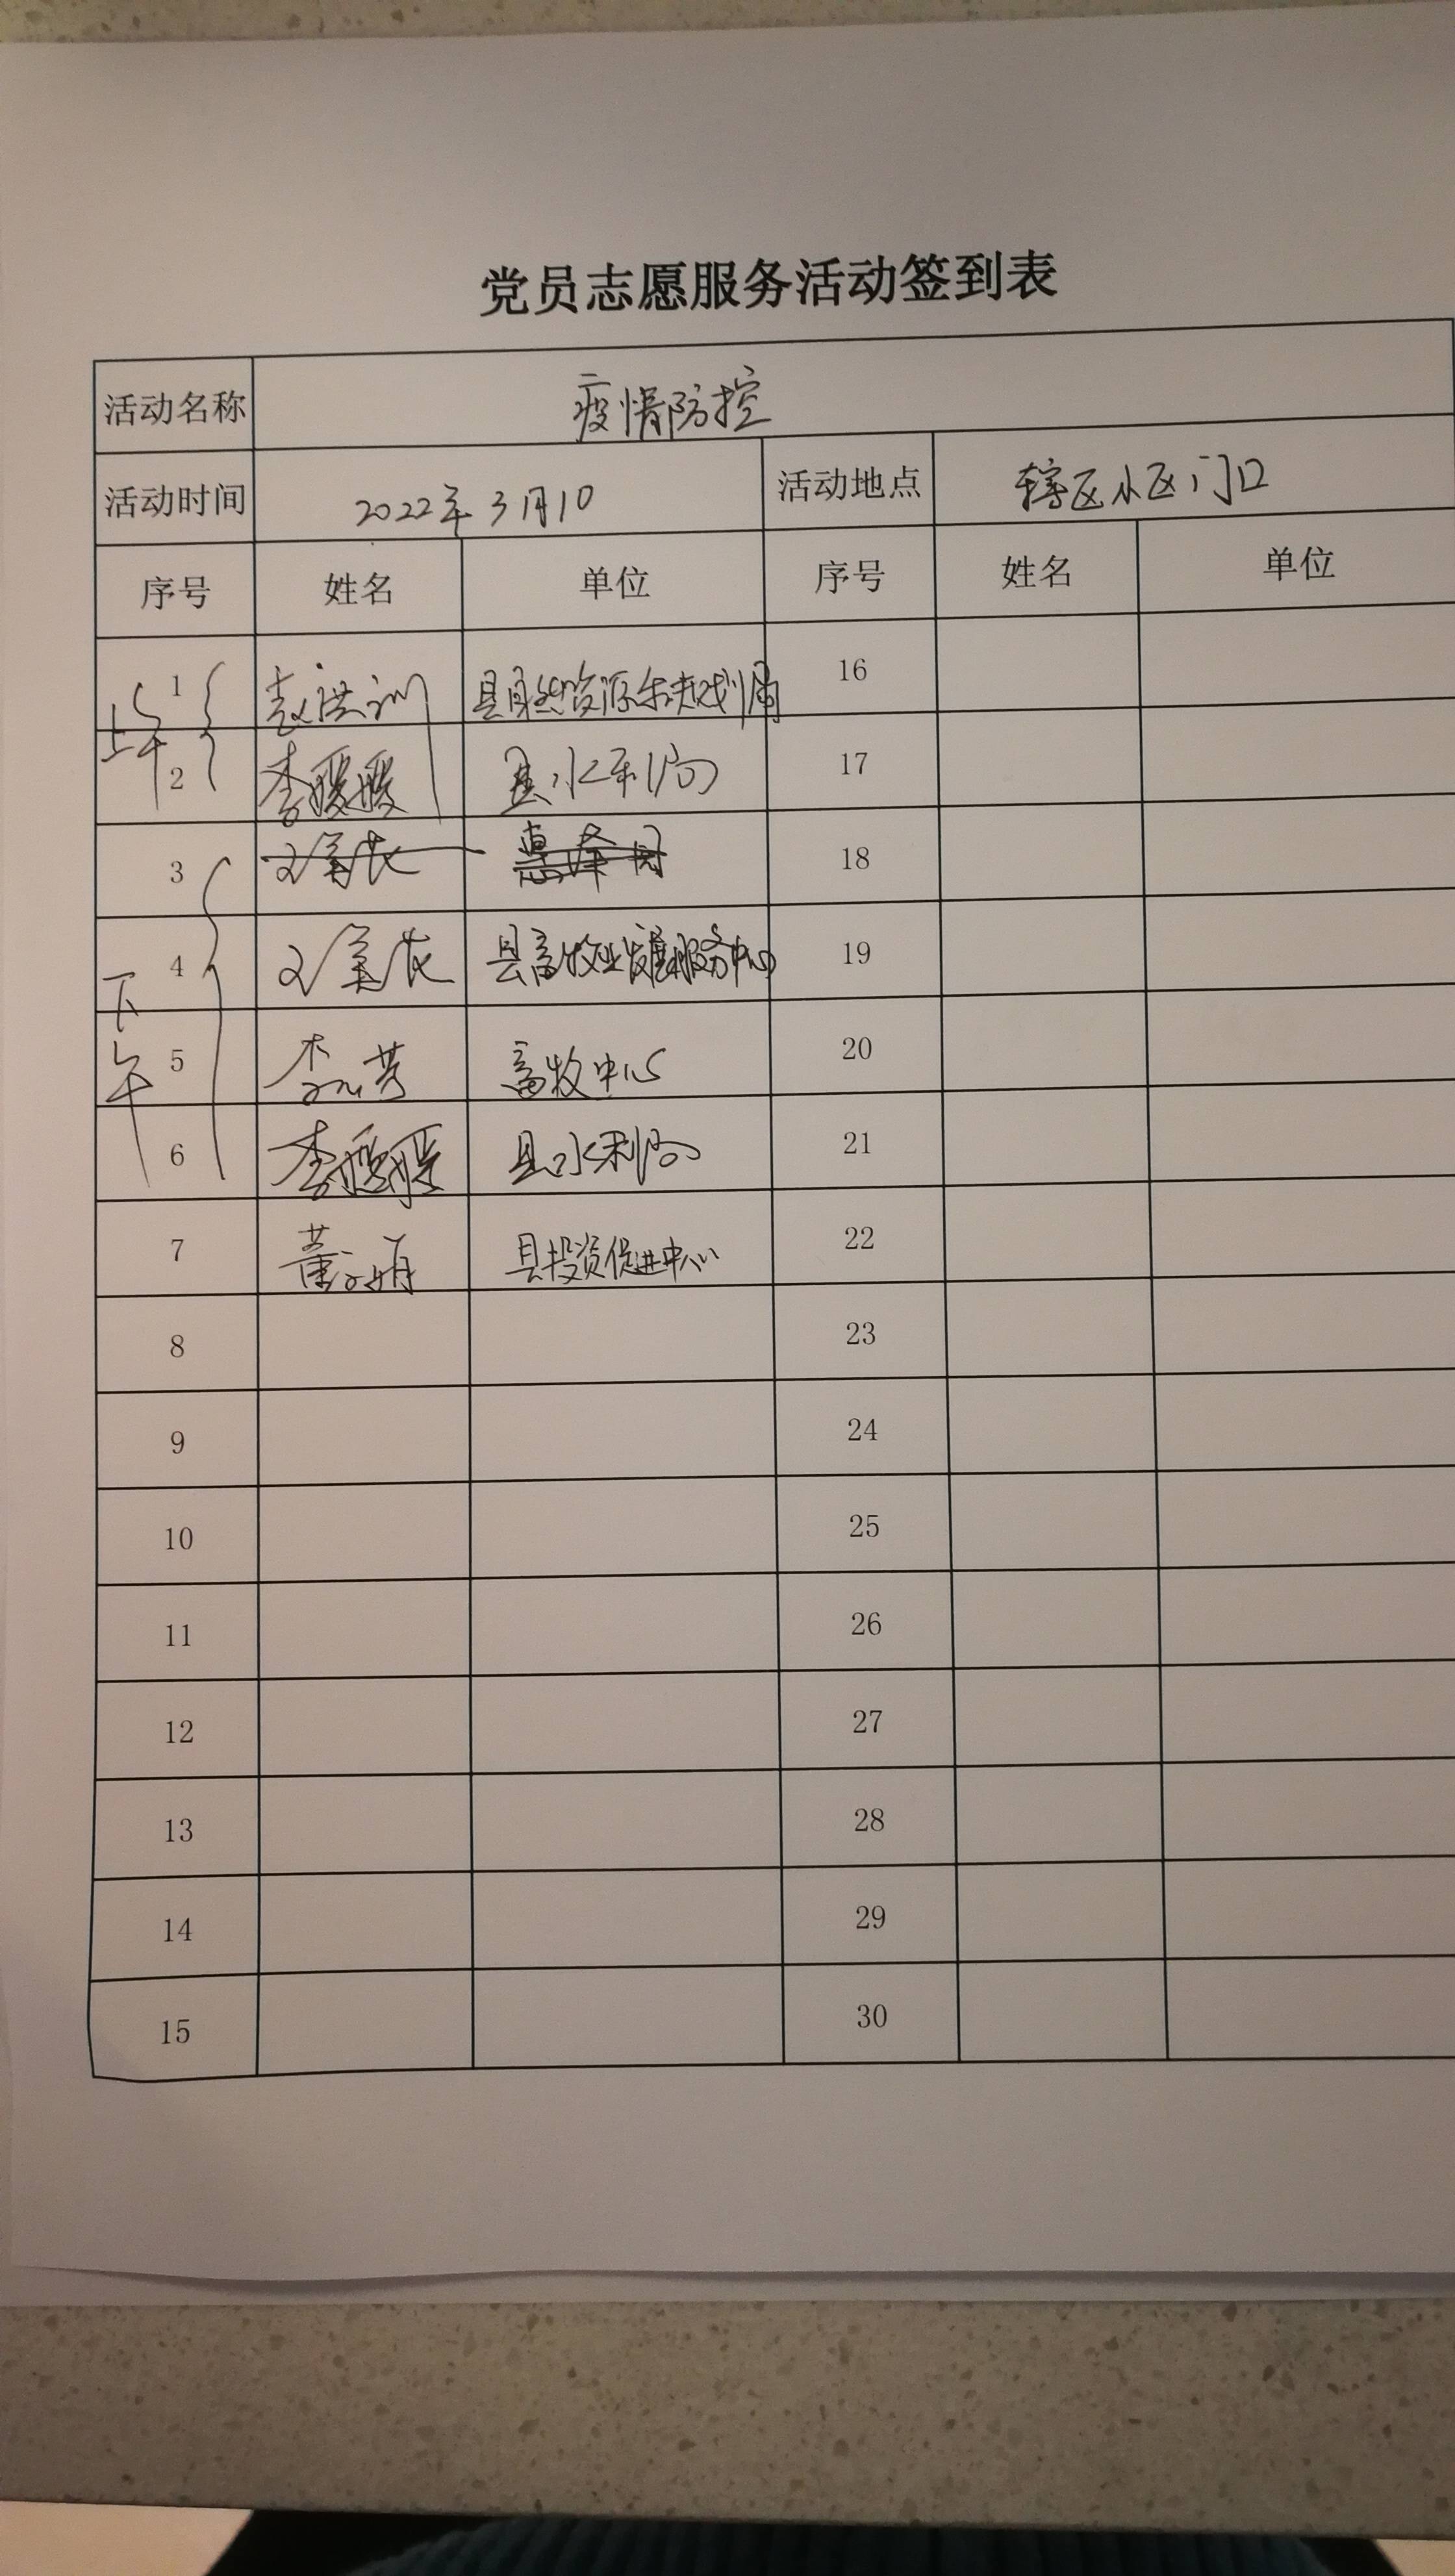 党员志愿服务活动签到表
活动名称 疫情防控
活动时间 2022年3月10 活动地点 辖区小区门口
序号 姓名 单位 序号 姓名 单位
上午
1 赵洪训 县自然资源和规划局 16
2 李媛媛 县水利局 17
3 18
下午
4 县畜牧业发展服务中心 19
5 畜牧中心 20
6 李媛媛 县水利局 21
7 董 娟 县投资促进中心 22
8 23
9 24
10 25
11 26
12 27
13 28
14 29
15 30